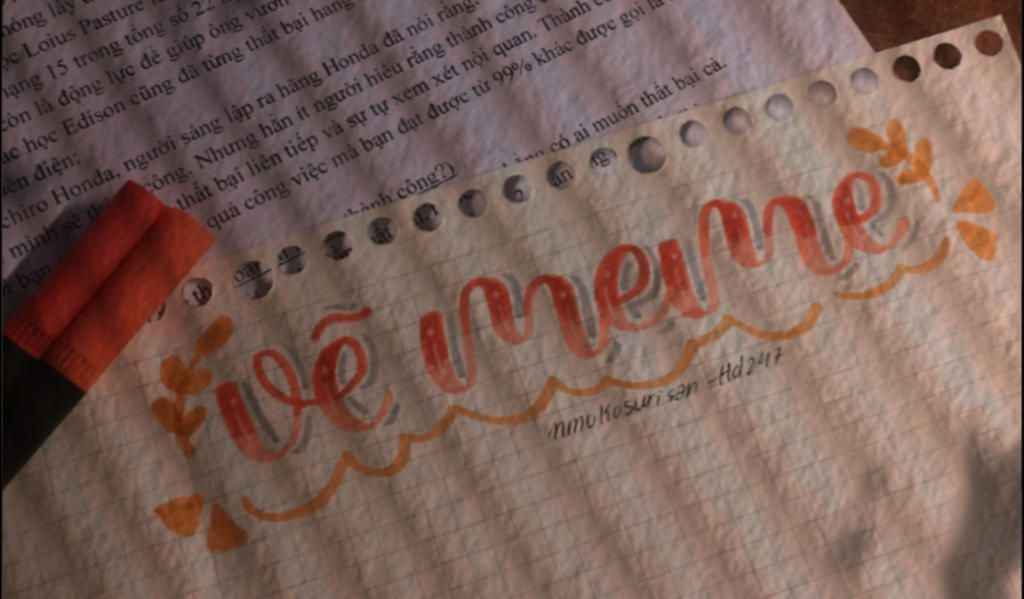 hông lấy
ọc Loius Pasture
hạng 15 trong tổng số 22
còn là động lực để giúp ông vươn
ác học Edison cũng đã từng thất bại hàng
iên điện;
chiro Honda, người sáng lập ra hãng Honda đã nói rằng:
mình sẽ công. Nhưng hắn ít người hiểu rằng thành công
thất bại liên tiếp và sự tự xem xét nội quan. Thành c
t bạn quả công việc mà bạn đạt được từ 99% khác được gọi là
thành công?) có ai muốn thất bại cả.
vẽ meme
nmokosurisan -Hd247